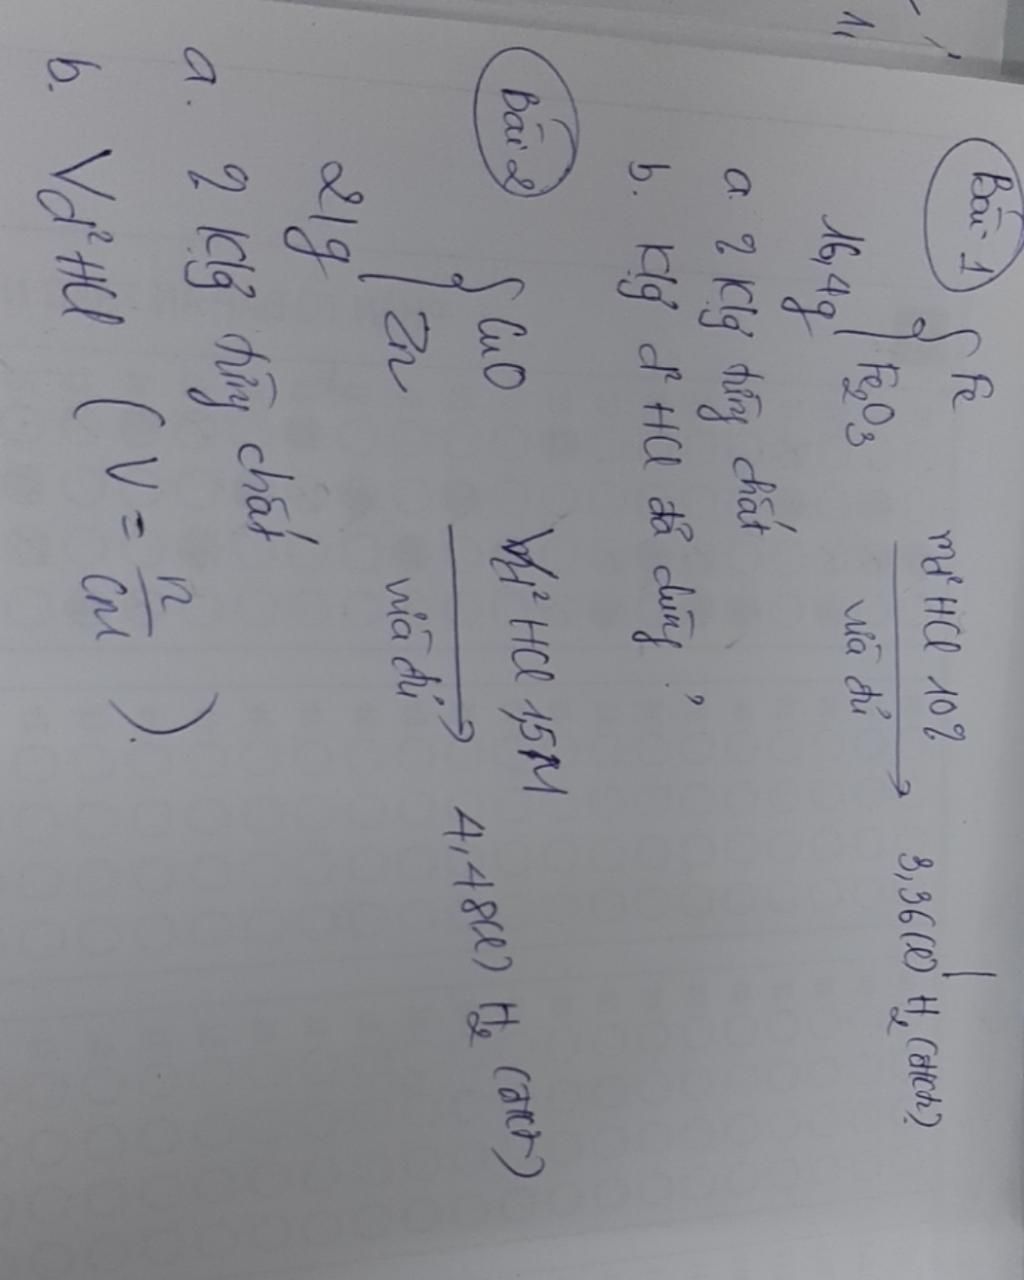 1,
Bài 1
16,4g { Fe
Fe2O3
md2 HCl 10%
vừa đủ
3,36(l) H2 (đktc)
a. ? Klg từng chất
b. Klg d2 HCl đã dùng ?
Bài 2
21g { CuO
Zn
Vd2 HCl 1,5M
vừa đủ
4,48(l) H2 (đktc)
a. ? Klg từng chất
b. Vd2 HCl ( V = n/CM ).